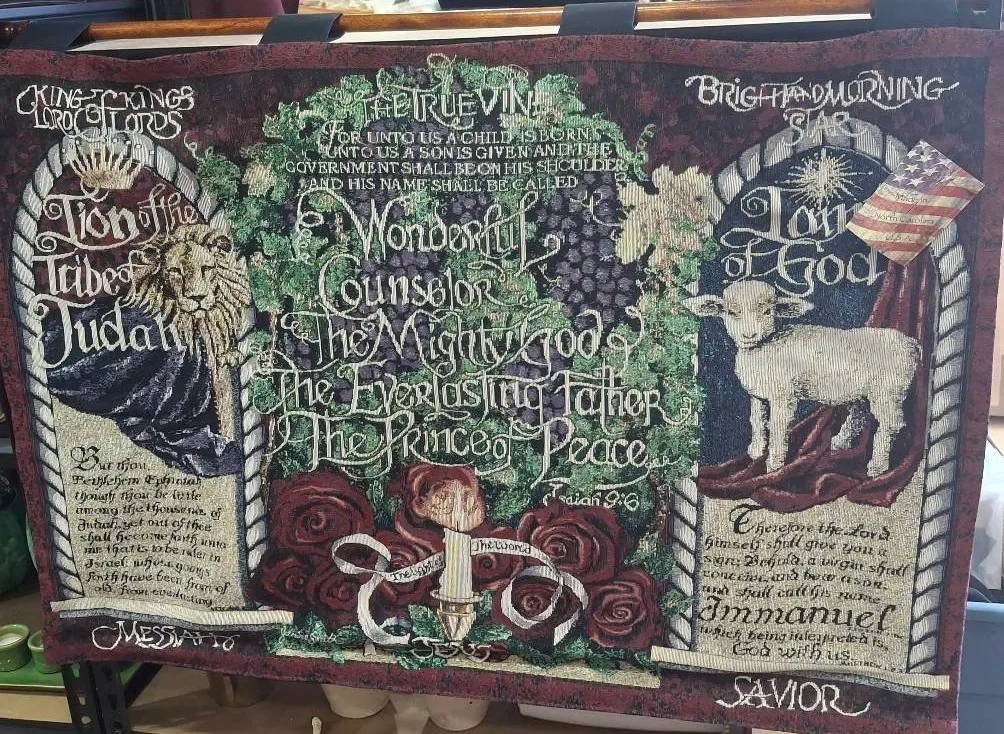 KING OF KINGS
LORD OF LORDS
Lion of the
Tribe of
Judah
But thou,
Bethlehem Ephratah
though thou be little
among the thousands of
Judah, yet out of thee
shall he come forth unto
me that is to be ruler in
Israel, whose goings
forth have been from of
old, from everlasting
MESSIAH
THE TRUE VINE
FOR UNTO US A CHILD IS BORN,
UNTO US A SON IS GIVEN AND THE
GOVERNMENT SHALL BE ON HIS SHOULDER
AND HIS NAME SHALL BE CALLED
Wonderful
Counselor
The Mighty God
The Everlasting Father
The Prince of Peace
Isaiah 9:6
The Light of
The World
JESUS
BRIGHT AND MORNING
STAR
Lamb
of God
Made in
North Carolina
U.S.A.
Therefore the Lord
himself shall give you a
sign; Behold, a virgin shall
conceive, and bear a son,
and shall call his name
Immanuel
which being interpreted is,
God with us
SAVIOR